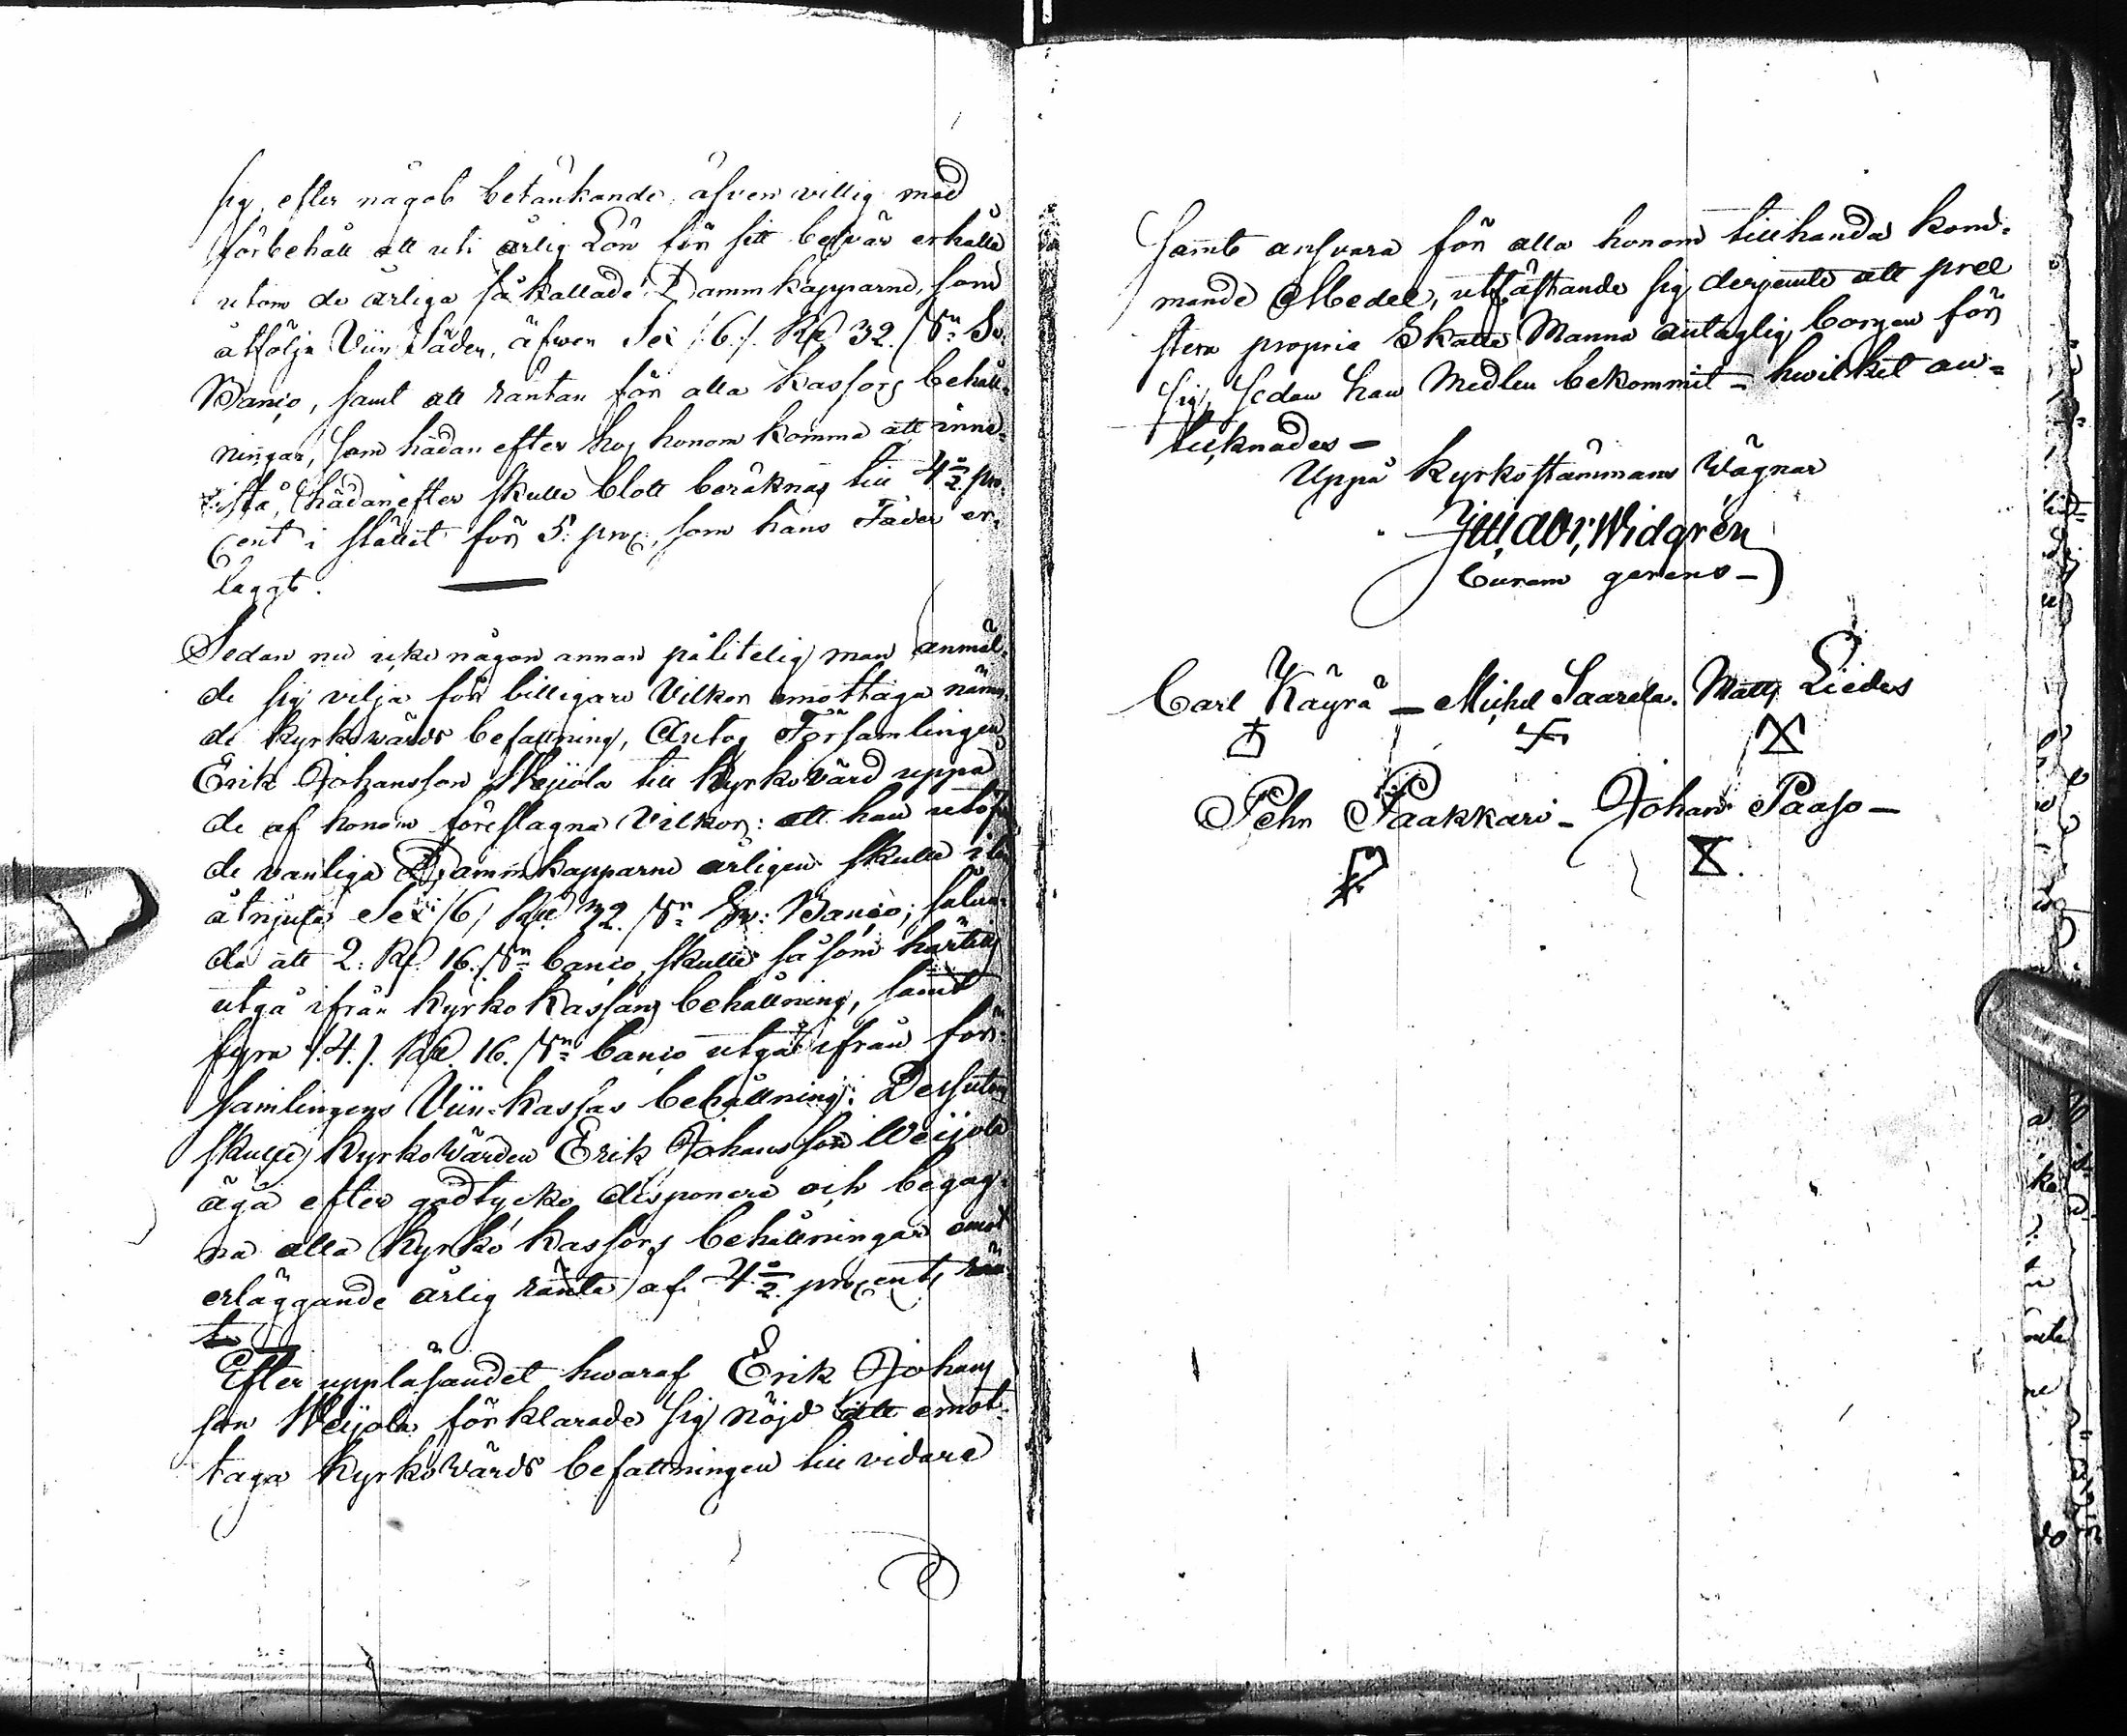 sig, efter något betänkande, äfven villig med
förbehåll att uti årlig Lön för sitt besvär erhålla
utom de årliga så kallade Dammkapparne, som
åtfölja Viin Säden, äfwen Sex /:6:/ Rd 32. sk: Sv:
Banco, samt att räntan för alla Kassors behåll-
ningar, som hädan efter hos honom komma att inne-
stå, hädanefter skulle blott beräknas till 4 1/2 pro-
cent i stället för 5: proc:, som hans Fader er-
laggt.
Sedan nu icke någon annan pålitelig man anmäl-
de sig vilja för billigare Vilkor emottaga nämn-
de kyrkovärds befattning, Antog Församlingen
Erik Johansson Weijola till Kyrkovärd uppå
de af honom föreslagna Vilkor: att han utöfver
de vanliga Dammkapparne årligen skulle
åtnjuta Sex /6/ Rd 32. sk Sv: Banco; sålun-
da att 2: Rd. 16. sk banco skulle såsom härtills
utgå ifrån Kyrko Kassans behållning, samt
fyra /:4./. Rd. 16. sk banco utgå ifrån för-
samlingens Viin-kassas behållning: Dessutom
skulle Kyrkovärden Erik Johansson Weijola
äga efter godtycke disponera och begag-
na alla Kyrko kassors behållningar emot
erläggande årlig ränta af 4 1/2 procents rän-
ta
Efter uppläsandet hwaraf Erik Johans
son Weijola förklarade sig nöjd att emot-
taga Kyrkovärds befattningen till vidare
samt ansvara för alla honom tillhanda kom-
mande Medel, utfästande sig derjemte att præ
stera proprie Skatte Manna antaglig borgen för
sig, sedan han Medlen bekommit – hwilket an-
tecknades –
Uppå Kyrkostämmans Vägnar
Widgrén
Curam gerens –
Carl Käyrä – Michel Saarela. Matts Liedes
Pehr Paakkari – Johan Paaso –